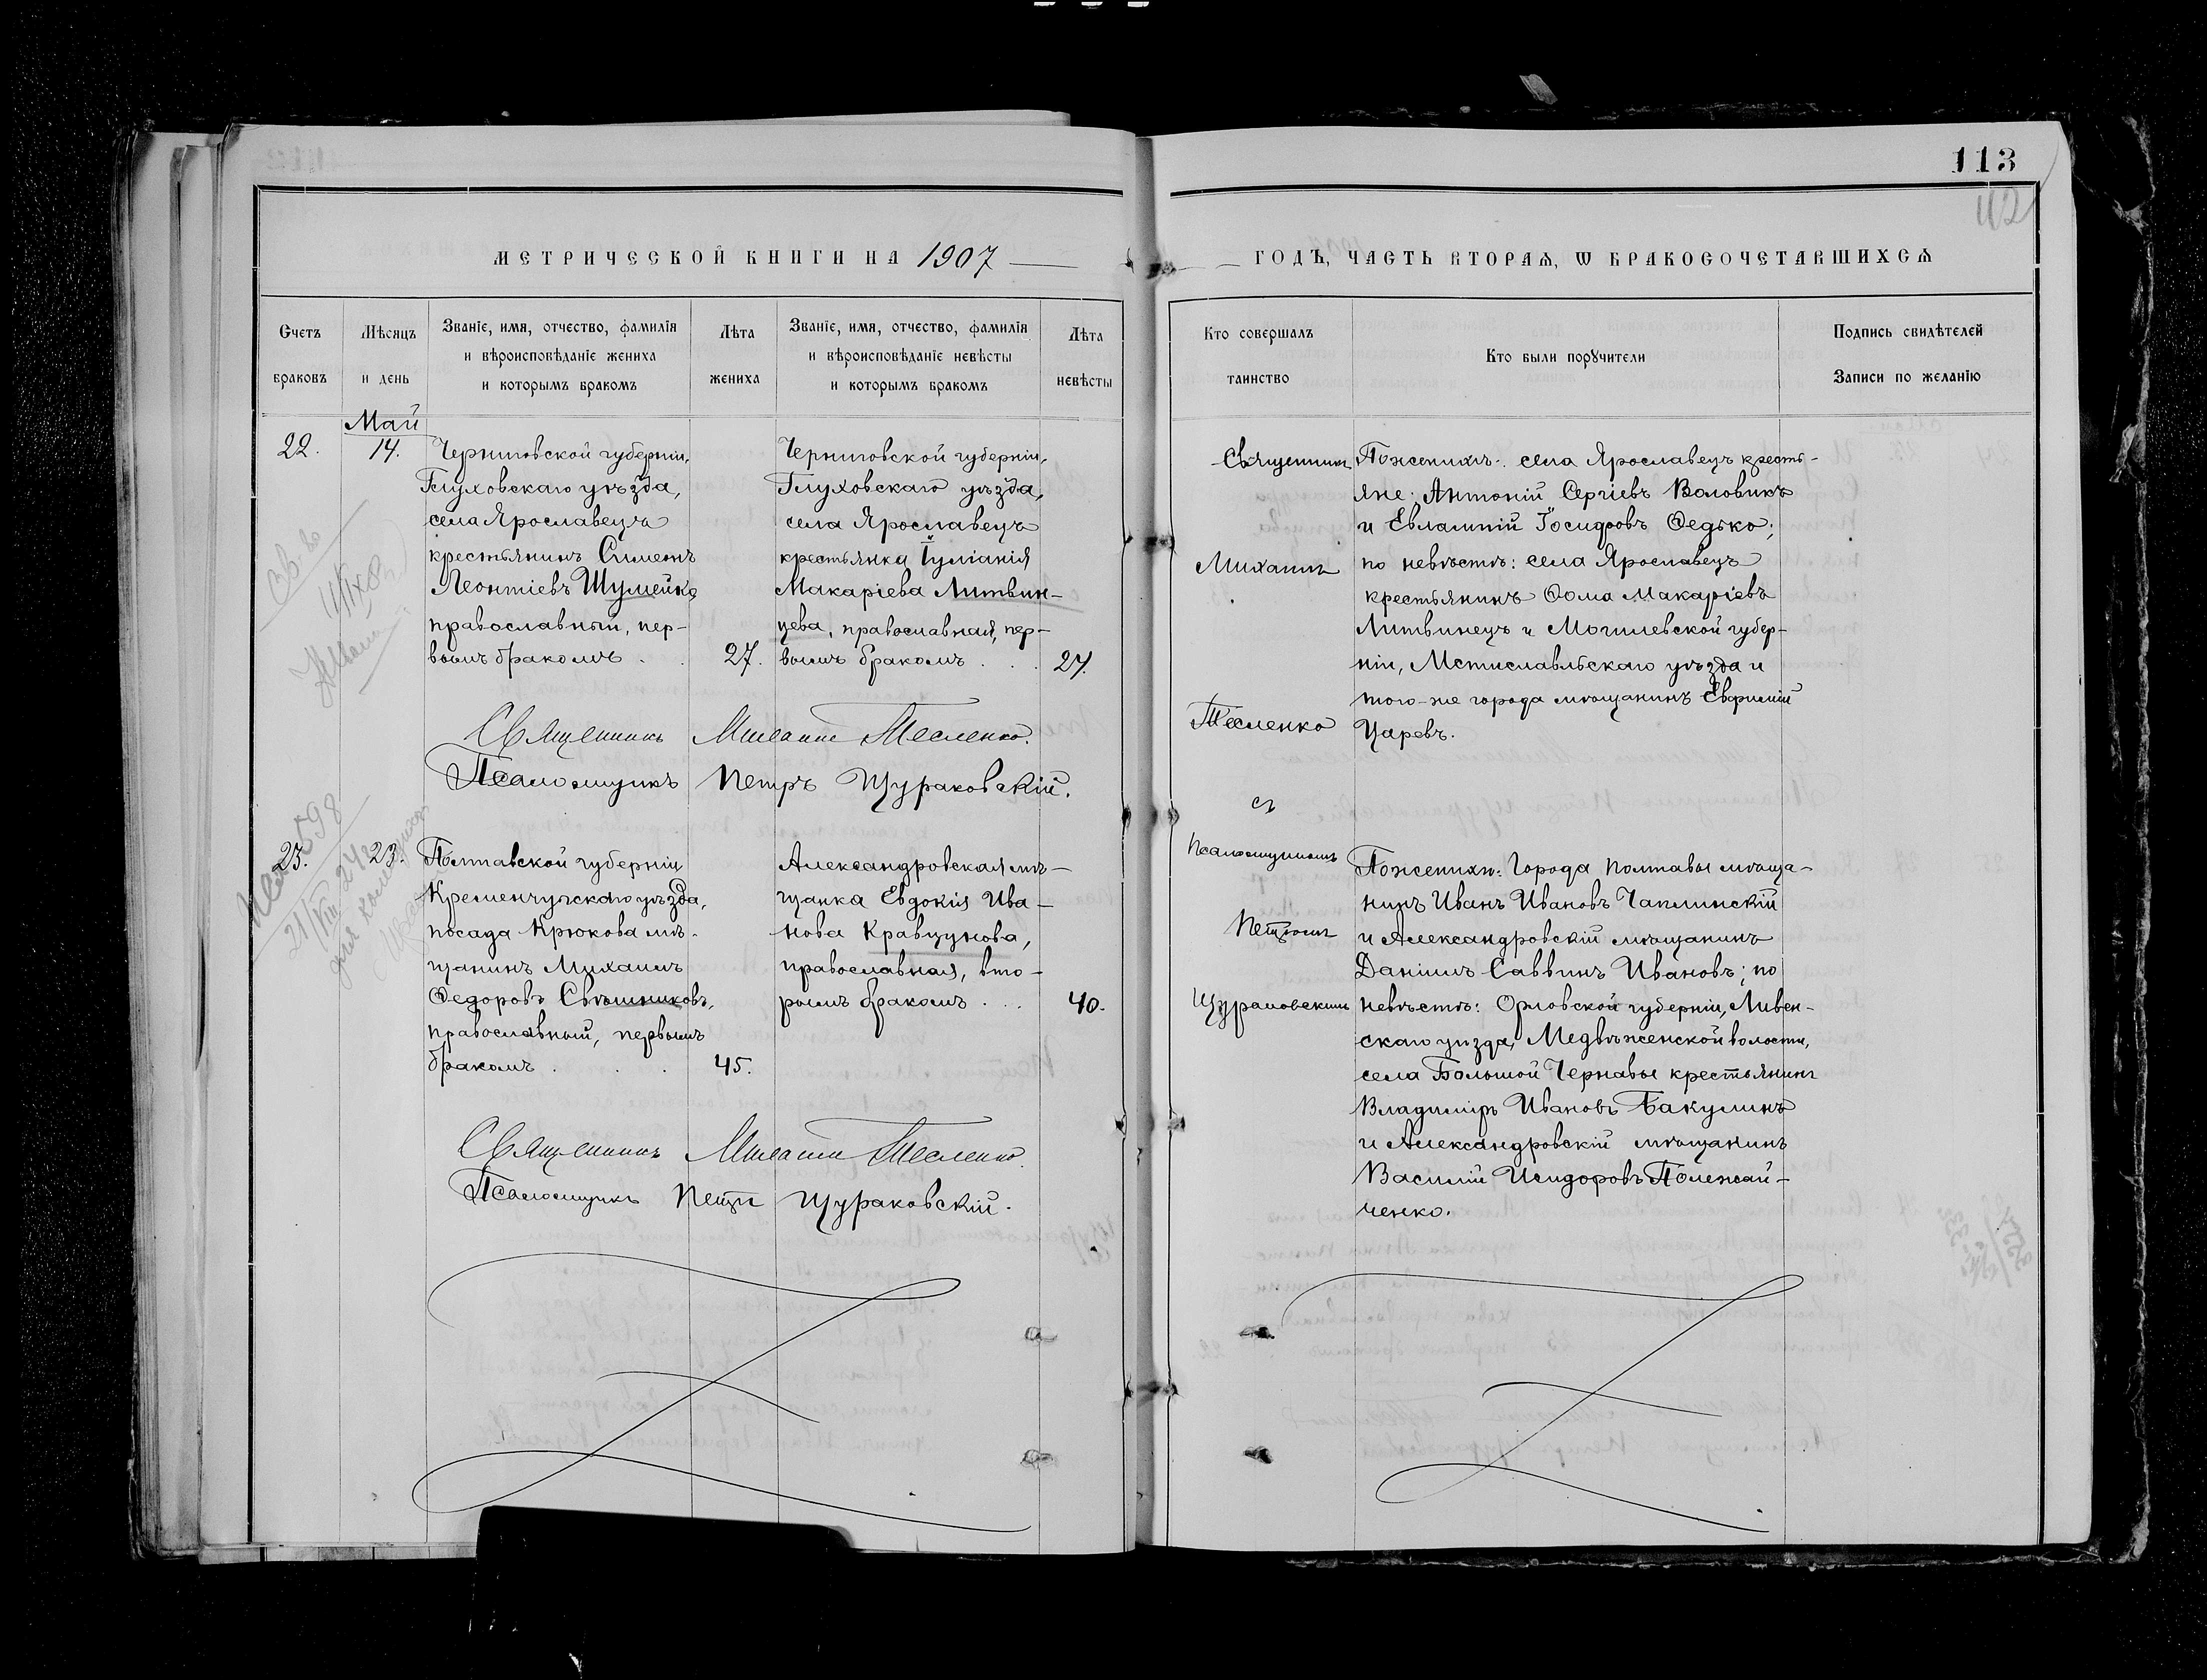 113
112
МЕТРИЧЕСКОЙ КНИГИ НА 1907
ГОДЪ, ЧАСТЬ ВТОРАѦ, Ѡ БРАКОСОЧЕТАВШИХСѦ
Счетъ браковъ
Мѣсяцъ и день
Званіе, имя, отчество, фамилія
и вѣроисповѣданіе жениха
и которымъ бракомъ
Лѣта жениха
Званіе, имя, отчество, фамилія
и вѣроисповѣданіе невѣсты
и которымъ бракомъ
Лѣта невѣсты
Кто совершалъ
таинство
Кто были порꙋчители
Подпись свидѣтелей
Записи по желанію
Май
22.
14.
Черниговской губерніи,
Глуховскаго уѣзда,
села Ярославецъ
крестьянинъ Симеонъ
Леонтіевъ Шумейко,
православный, пер-
вымъ бракомъ . .
27.
Черниговской губерніи,
Глуховскаго уѣзда,
села Ярославецъ
крестьянка Іуліанія
Макаріева Литвин-
цева, православная, пер-
вымъ бракомъ . . .
27.
Священникъ
Михаилъ
Тесленко
съ
Псаломщикомъ
Петромъ
Щураковскимъ
По женихѣ: села Ярославецъ кресть-
яне: Антоній Сергіевъ Воловикъ
и Евлампій Іосифовъ Ѳедько;
по невѣстѣ: села Ярославецъ
крестьянинъ Ѳома Макаріевъ
Литвинецъ и Могилевской губер-
ніи, Мстиславльскаго уѣзда и
того-же города мѣщанинъ Евфимій
Царевъ.
Священникъ Михаилъ Тесленко.
Псаломщикъ Петръ Щураковскій.
23.
23.
Полтавской губерніи
Кременчугскаго уѣзда,
посада Крюкова мѣ-
щанинъ Михаилъ
Ѳедоровъ Свѣшниковъ,
православный, первымъ
бракомъ . . .
45.
Александровская мѣ-
щанка Евдокія Ива-
нова Кравцунова,
православная, вто-
рымъ бракомъ . . .
40.
По женихѣ: Города Полтавы мѣща-
нинъ Иванъ Ивановъ Чаплинскій
и Александровскій мѣщанинъ
Даніилъ Саввинъ Ивановъ; по
невѣстѣ: Орловской губерніи, Ливен-
скаго уѣзда, Медвѣженской волости,
села Большой Чернавы крестьянинъ
Владиміръ Ивановъ Бакулинъ
и Александровскій мѣщанинъ
Василій Исидоровъ Полежай-
ченко.
Священникъ Михаилъ Тесленко.
Псаломщикъ Петръ Щураковскій.